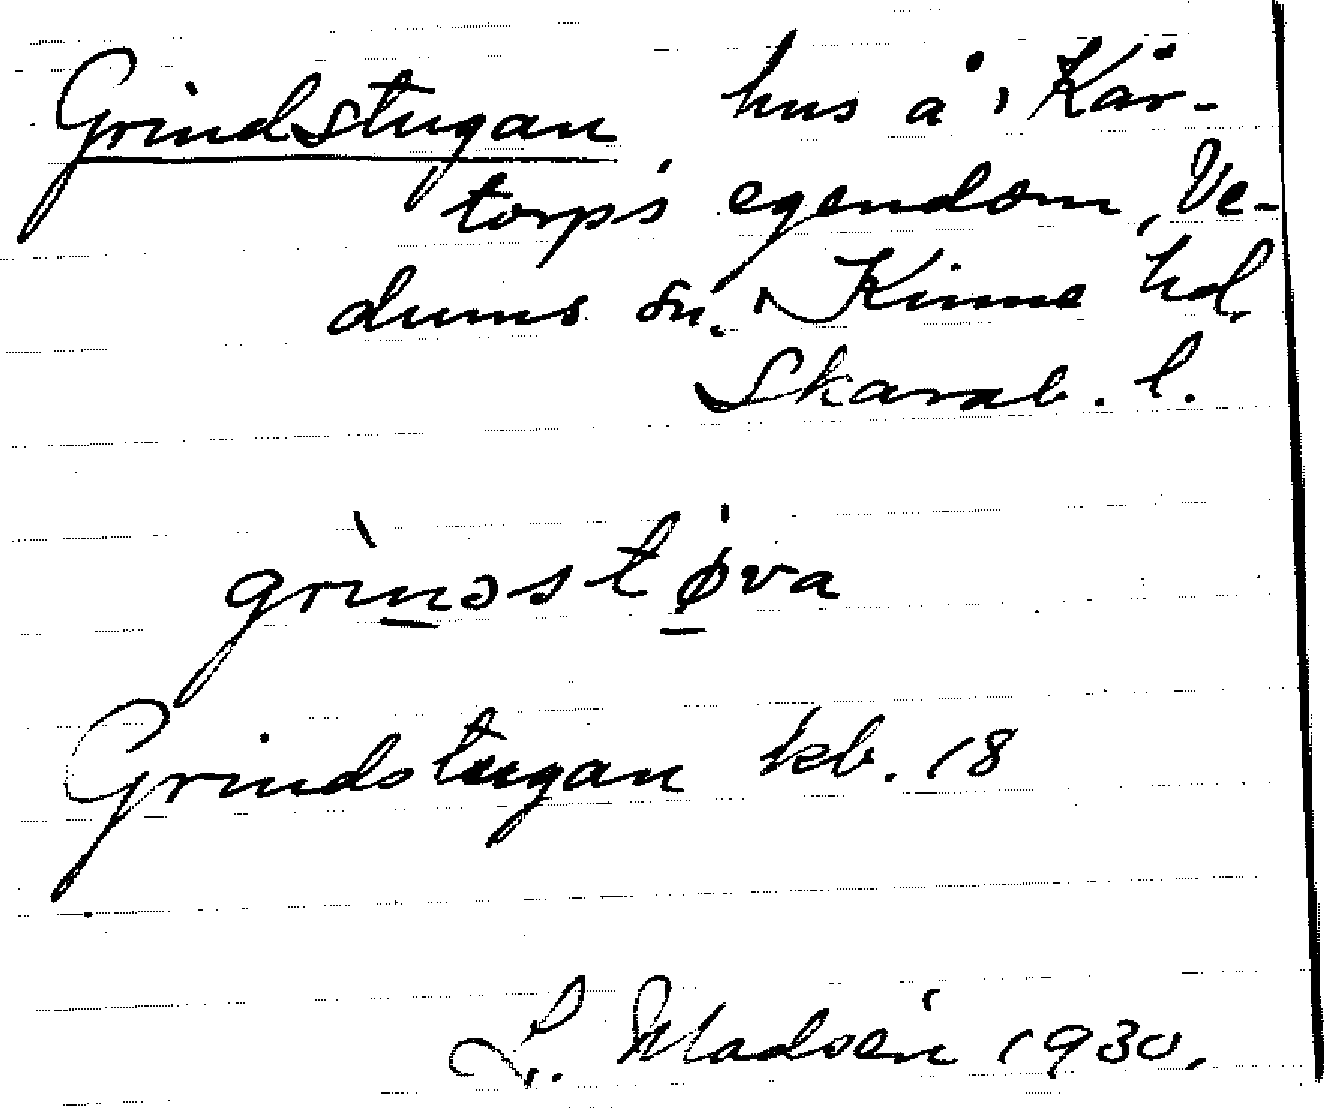 Grindstugan hus å 'Kår-
torp's egendom, Ve-
dums sn. 'Kinne hd.
Skarab. l.
grìnəstø̍va
Grindstugan kb. 18
L. Madsén 1930.